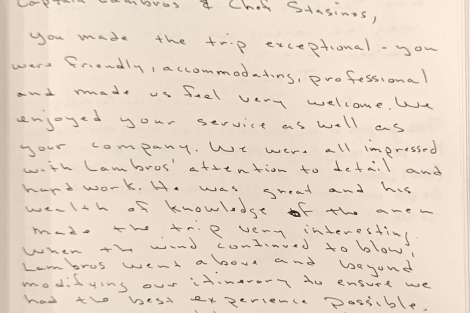 Captain Lambros & Chef Stasinos,
you made the trip exceptional - you
were friendly, accommodating, professional
and made us feel very welcome. We
enjoyed your service as well as
your company. We were all impressed
with Lambros' attention to detail and
hard work. He was great and his
wealth of knowledge of the area
made the trip very interesting.
When the wind continued to blow,
Lambros went above and beyond
modifying our itinerary to ensure we
had the best experience possible.